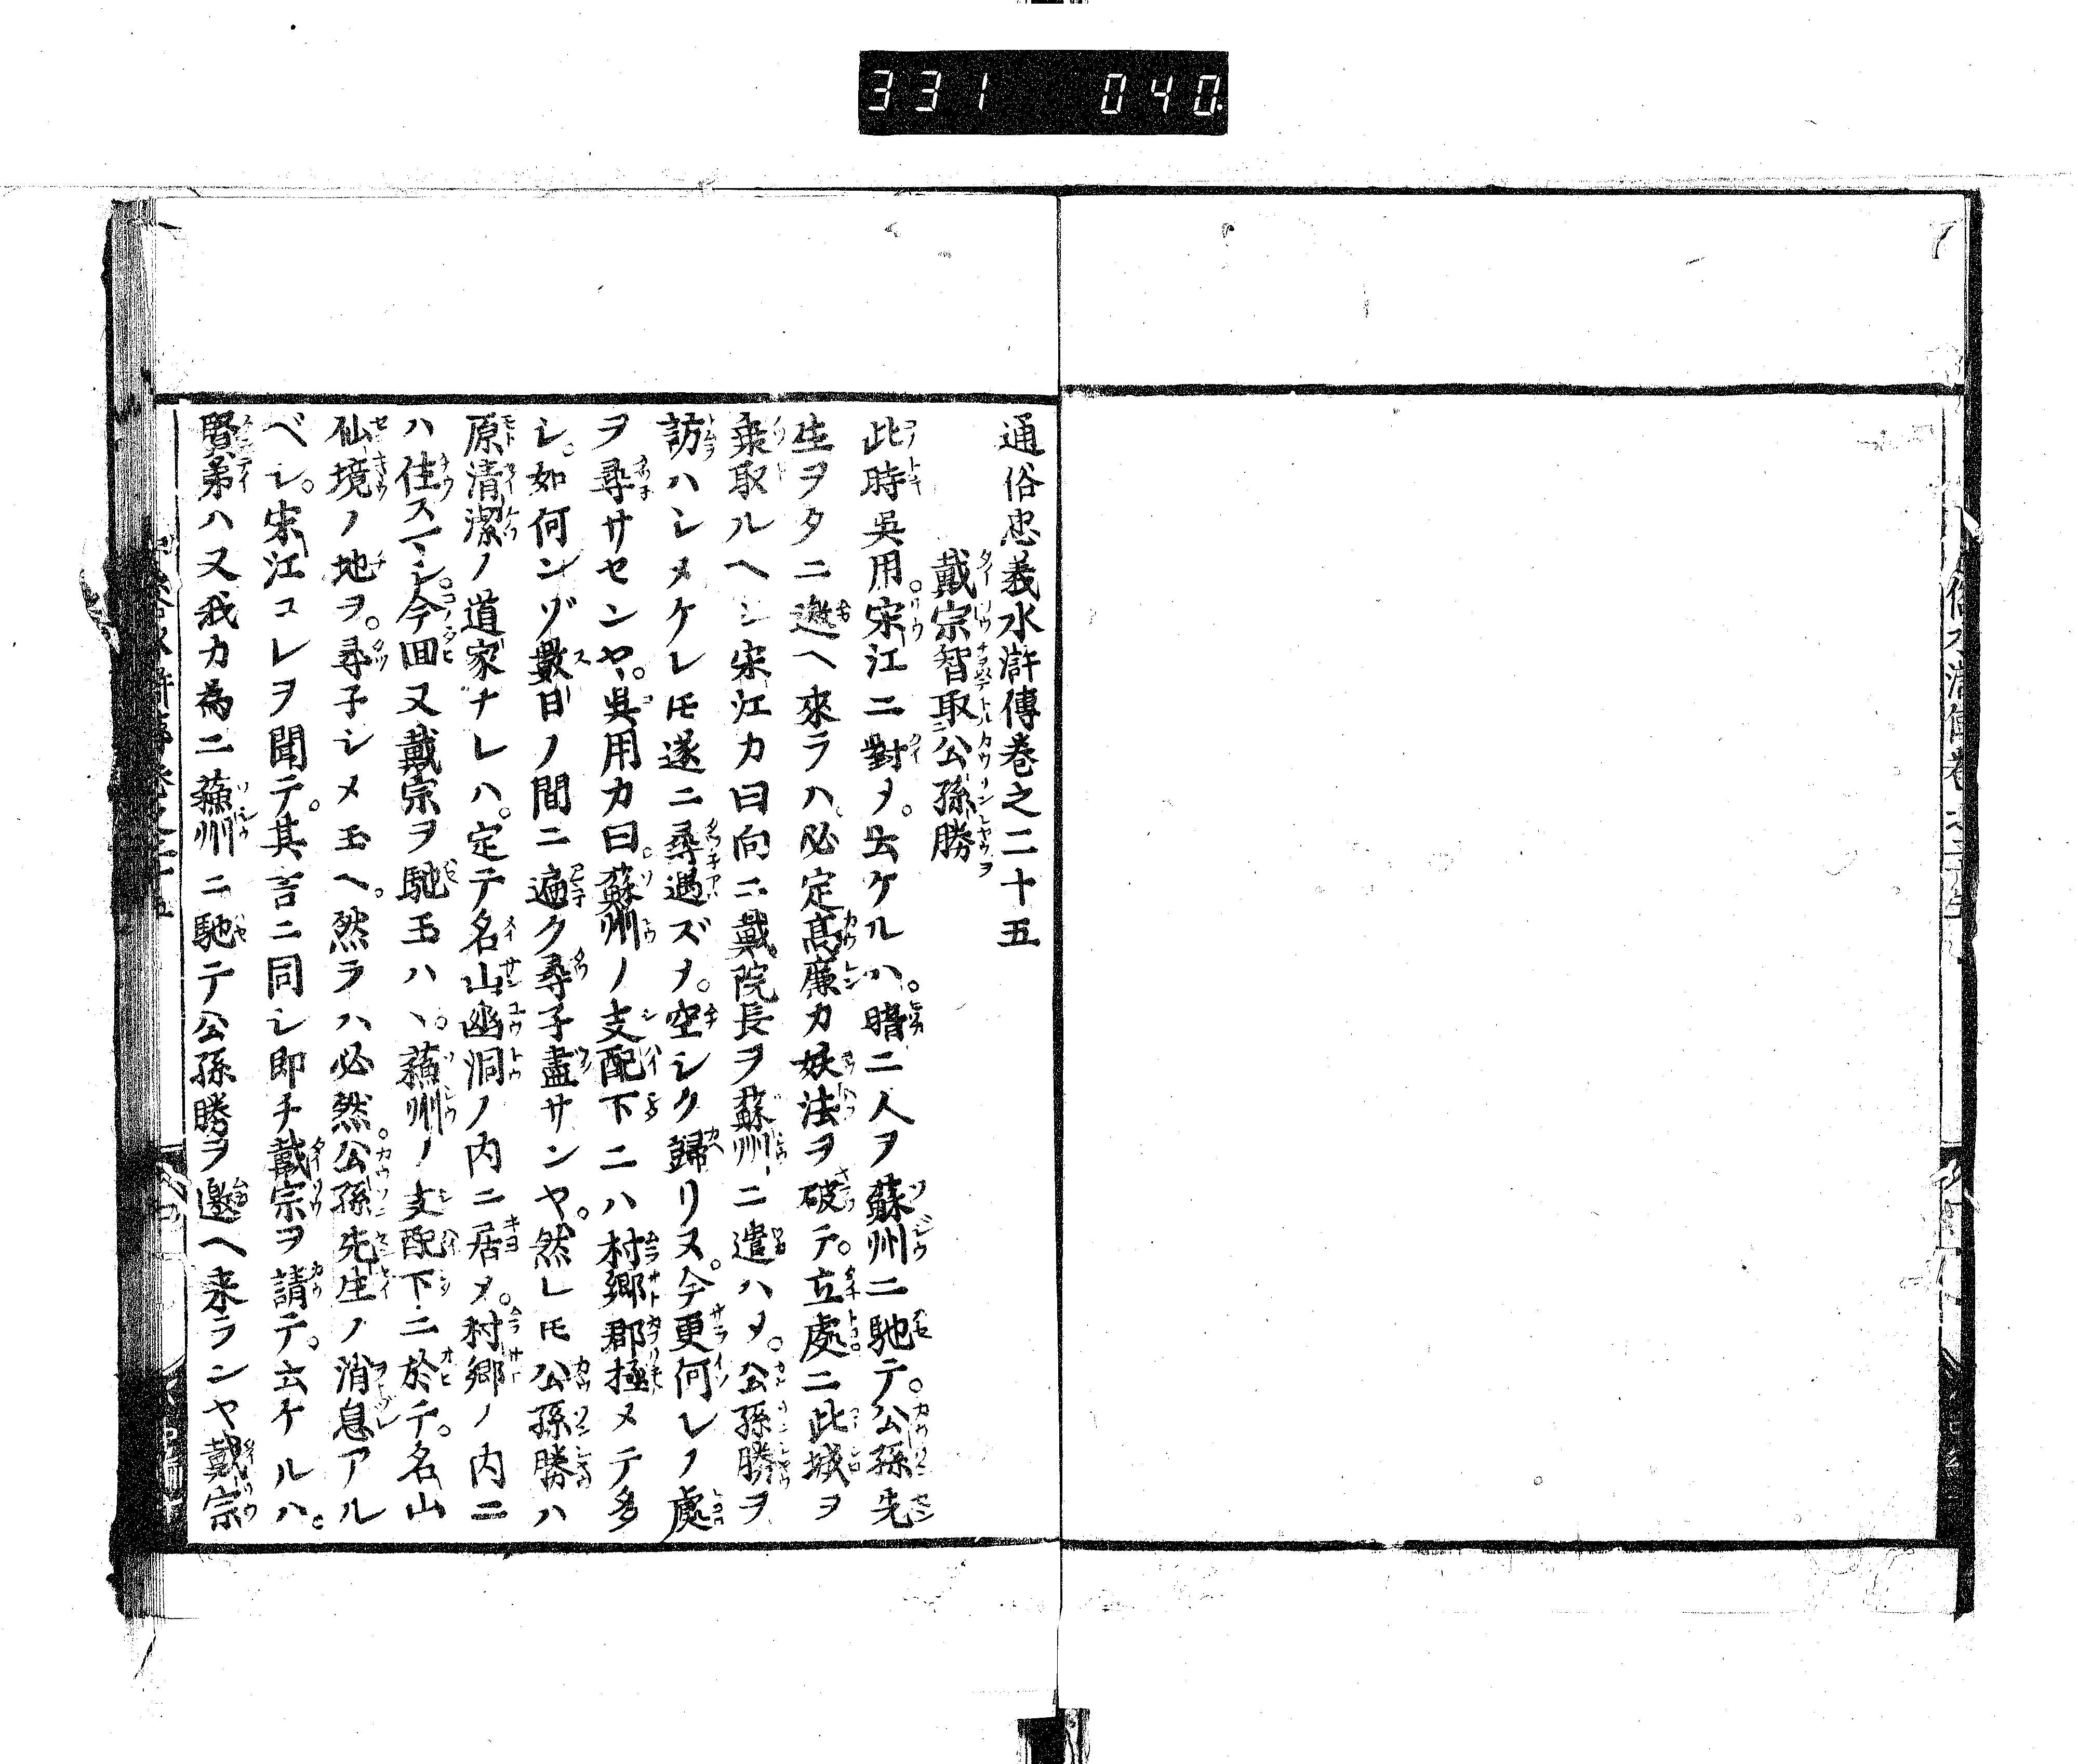 331 040
通俗忠義水滸傳巻之二十五
戴宗智取公孫勝
此時呉用。宋江ニ對〆。云ケルハ。暗ニ人ヲ蘇州ニ馳テ。公孫先
生ヲタニ邀ヘ來ラハ、必定髙廉カ妖法ヲ破テ。立處ニ此城ヲ
乗取ルヘシ宋江カ曰向ニ戴院長ヲ蘇州ニ遣ハ〆。公孫勝ヲ
訪ハシメケレ𪜈遂ニ尋遇ズ〆。空シク歸リヌ。今更何レノ處
ヲ尋サセンヤ。呉用カ曰。蘇州ノ支配下ニハ村郷郡極メテ多
シ。如何ンゾ數日ノ間ニ遍ク尋子盡サンヤ。然レ𪜈公孫勝ハ
原清潔ノ道家ナレハ。定テ名山幽洞ノ内ニ居〆。村郷ノ内ニ
ハ住スマシ。今回又戴宗ヲ馳玉ハヽ。蘓州ノ支配下ニ於テ。名山
仙境ノ地ヲ。尋子シメ玉ヘ。然ラハ必然。公孫先生ノ消息アル
ベシ。宋江コレヲ聞テ。其言ニ同シ即チ戴宗ヲ請テ。云ケルハ。
賢弟ハ又我カ為ニ蘓州ニ馳テ公孫勝ヲ邀ヘ来ランヤ戴宗